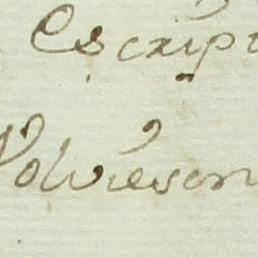 Escript
Volviesen